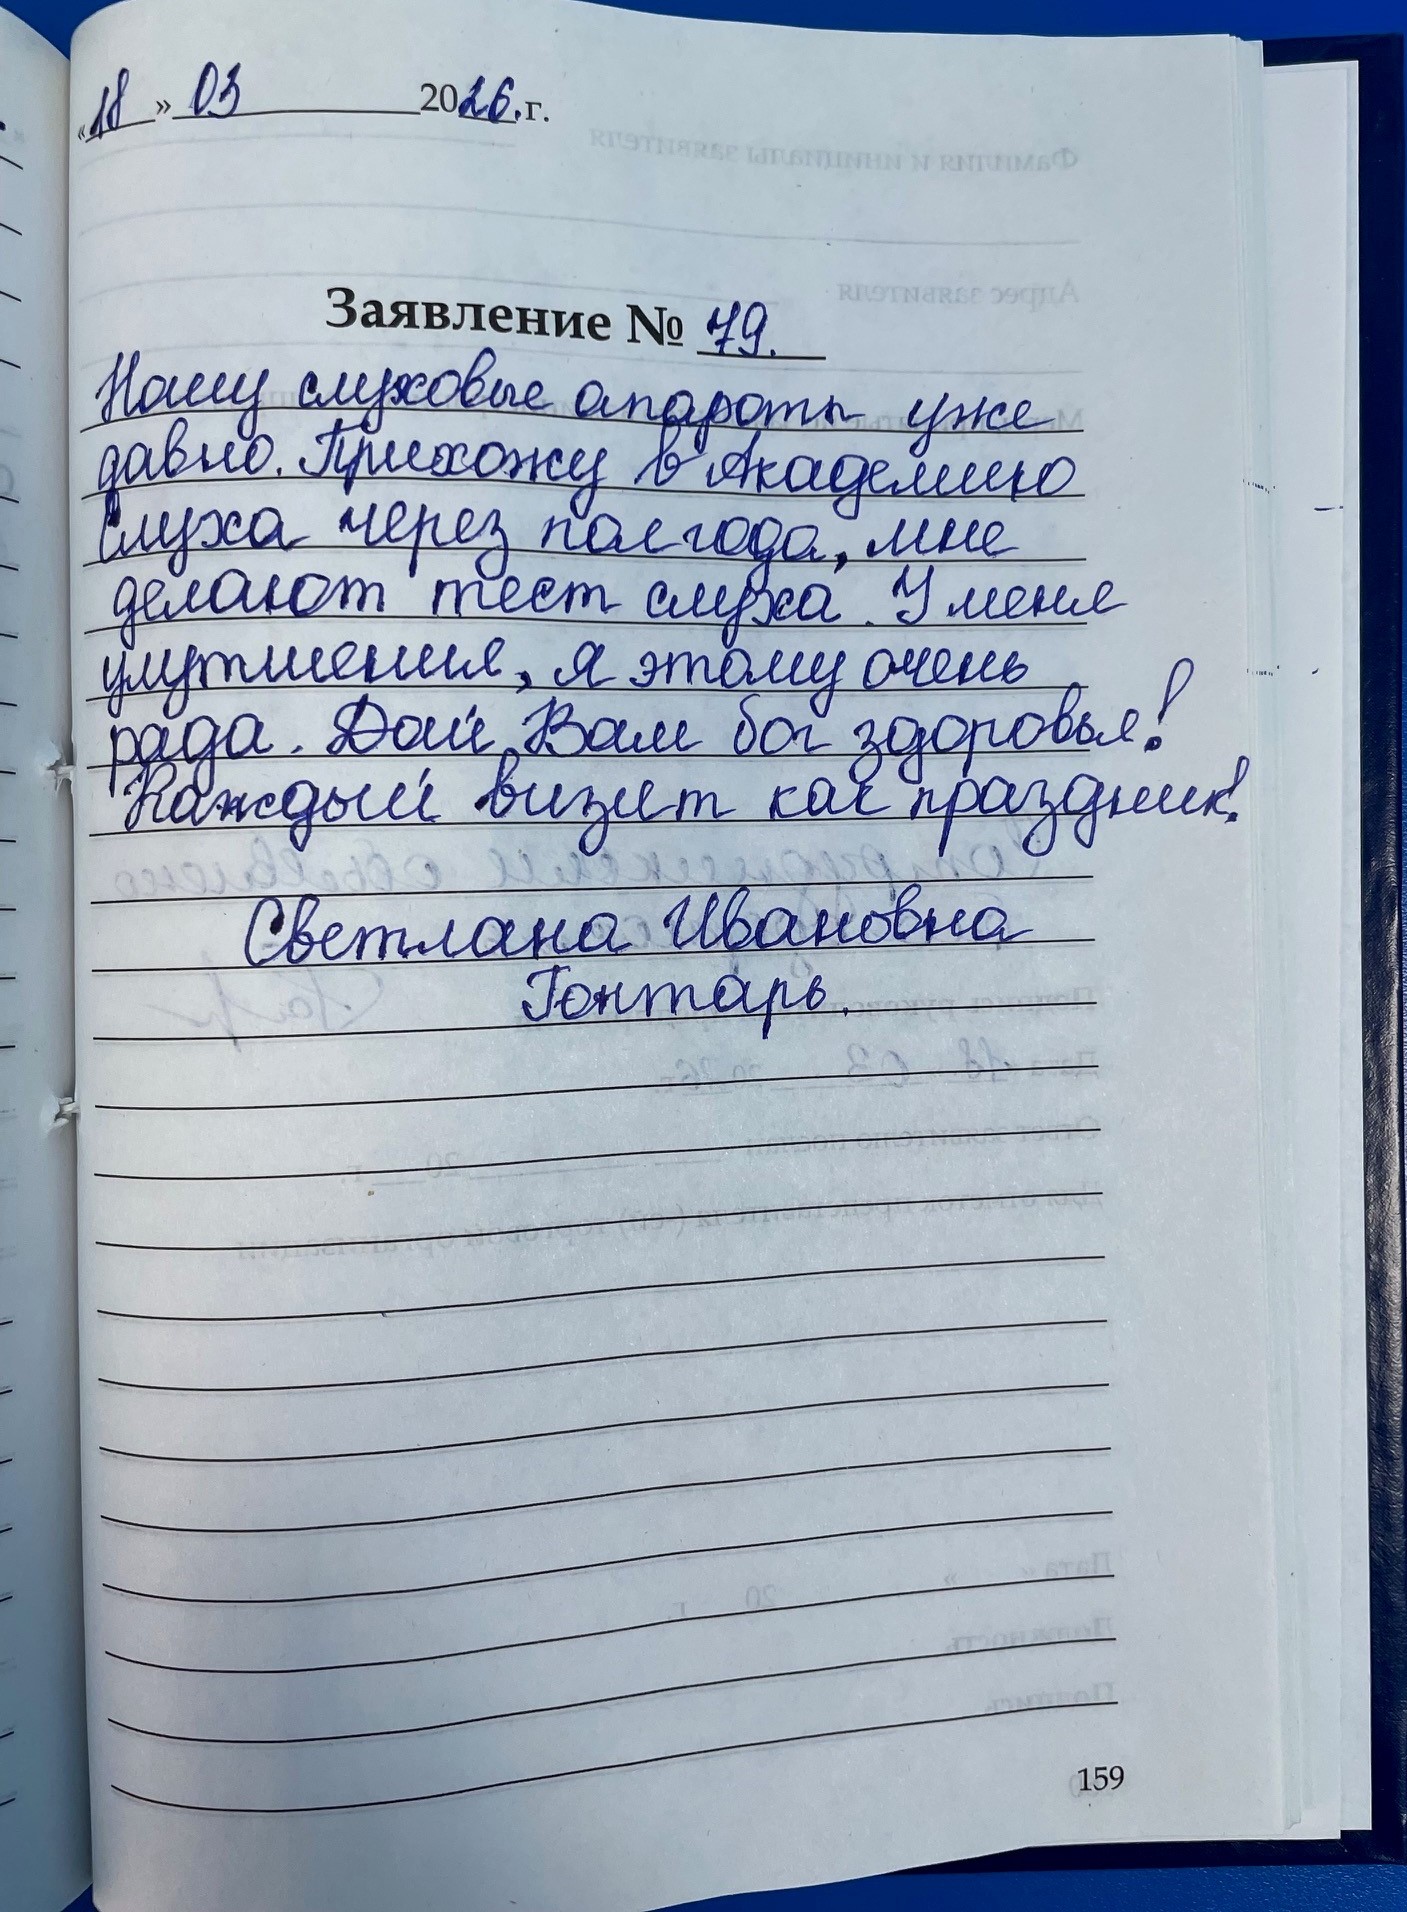 «18» 03 2026.г.
Заявление № 79.
Ношу слуховые апараты уже
давно. Прихожу в Академию
Слуха через полгода, мне
делают тест слуха. У меня
улутшения, я этому очень
рада. Дай Вам бог здоровья!
Каждый визит как праздник!
Светлана Ивановна
Гонтарь.
159